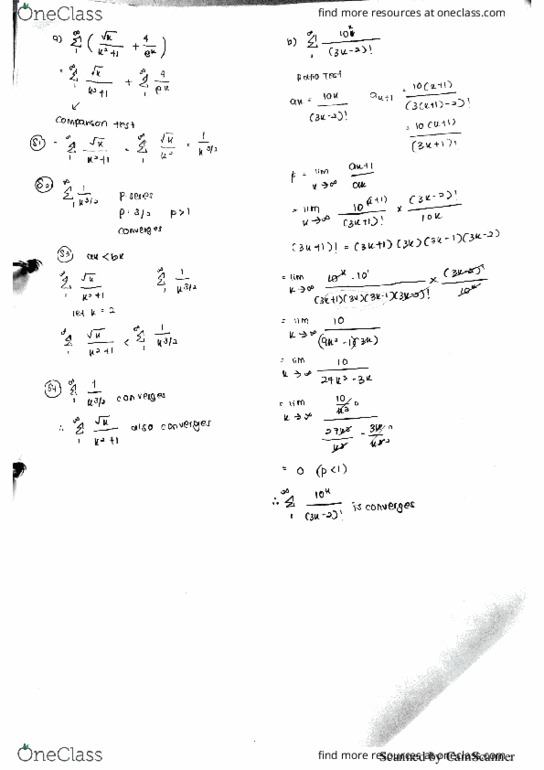 OneClass
find more resources at oneclass.com
a) ∞ Σ 1 ( √k / k²+1 + 4 / e^k )
= ∞ Σ 1 √k / k²+1 + ∞ Σ 1 4 / e^k
↙
comparison test
S1 = ∞ Σ 1 √k / k²+1 = ∞ Σ 1 √k / k² = 1 / k^3/2
S2 ∞ Σ 1 1 / k^3/2 P series
P = 3/2 p>1
converges
S3 ak < bk
∞ Σ 1 √k / k²+1 ∞ Σ 1 1 / k^3/2
let k = 2
∞ Σ 1 √k / k²+1 < ∞ Σ 1 1 / k^3/2
S4 ∞ Σ 1 1 / k^3/2 converges
∴ ∞ Σ 1 √k / k²+1 also converges
b) ∞ Σ 1 10^k / (3k-2)!
Ratio Test
ak = 10k / (3k-2)! ak+1 = 10(k+1) / (3(k+1)-2)!
= 10(k+1) / (3k+1)!
P = lim k→∞ ak+1 / ak
= lim k→∞ 10^(k+1) / (3k+1)! × (3k-2)! / 10k
(3k+1)! = (3k+1)(3k)(3k-1)(3k-2)
= lim k→∞ 10^k · 10^1 / (3k+1)(3k)(3k-1)(3k-2)! × (3k-2)! / 10^k
= lim k→∞ 10 / (9k²-1)(3k)
= lim k→∞ 10 / 27k³-3k
= lim k→∞ 10/k³ / 27k³/k³ - 3k/k³
= 0 (p<1)
∴ ∞ Σ 1 10^k / (3k-2)! is converges
OneClass
find more resources at oneclass.com
Scanned by CamScanner